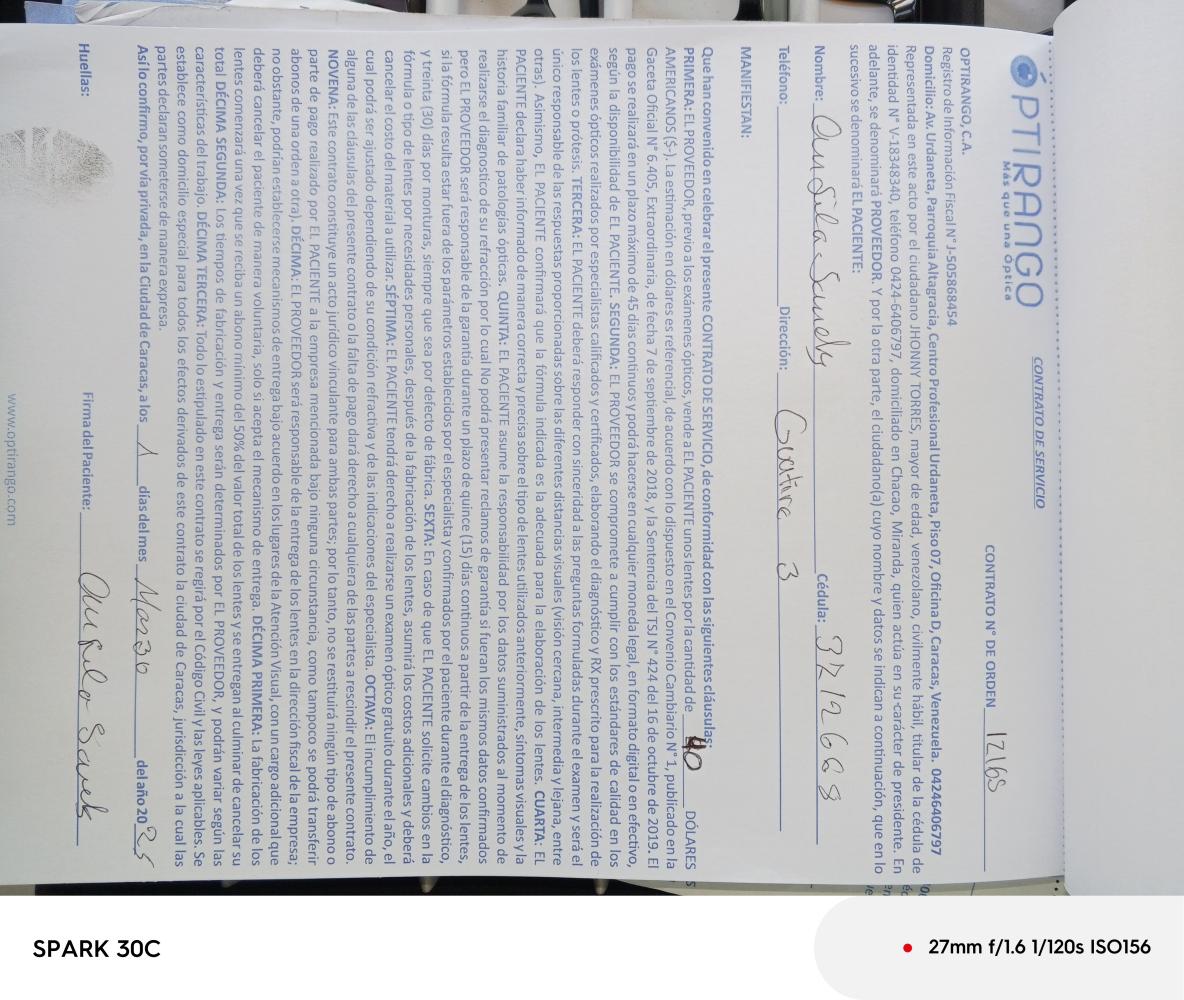 ÓPTIRANGO
Más que una Óptica
CONTRATO DE SERVICIO
CONTRATO N° DE ORDEN 12168
OPTIRANGO, C.A.
Registro de Información Fiscal N° J-505868454
Domicilio: Av. Urdaneta, Parroquia Altagracia, Centro Profesional Urdaneta, Piso 07, Oficina D, Caracas, Venezuela. 04246406797
Representada en este acto por el ciudadano JHONNY TORRES, mayor de edad, venezolano, civilmente hábil, titular de la cédula de
identidad N° V-18348340, teléfono 0424-6406797, domiciliado en Chacao, Miranda, quien actúa en su carácter de presidente. En
adelante, se denominará PROVEEDOR. Y por la otra parte, el ciudadano(a) cuyo nombre y datos se indican a continuación, que en lo
sucesivo se denominará EL PACIENTE:
Nombre: Cédula: 32126668
Teléfono: Dirección: Guatire 3
MANIFIESTAN:
Que han convenido en celebrar el presente CONTRATO DE SERVICIO, de conformidad con las siguientes cláusulas:
PRIMERA: EL PROVEEDOR, previo a los exámenes ópticos, vende a EL PACIENTE unos lentes por la cantidad de 40 DÓLARES
AMERICANOS ($-). La estimación en dólares es referencial, de acuerdo con lo dispuesto en el Convenio Cambiario N° 1, publicado en la
Gaceta Oficial N° 6.405, Extraordinaria, de fecha 7 de septiembre de 2018, y la Sentencia del TSJ N° 424 del 16 de octubre de 2019. El
pago se realizará en un plazo máximo de 45 días continuos y podrá hacerse en cualquier moneda legal, en formato digital o en efectivo,
según la disponibilidad de EL PACIENTE. SEGUNDA: EL PROVEEDOR se compromete a cumplir con los estándares de calidad en los
exámenes ópticos realizados por especialistas calificados y certificados, elaborando el diagnóstico y RX prescrito para la realización de
los lentes o prótesis. TERCERA: EL PACIENTE deberá responder con sinceridad a las preguntas formuladas durante el examen y será el
único responsable de las respuestas proporcionadas sobre las diferentes distancias visuales (visión cercana, intermedia y lejana, entre
otras). Asimismo, EL PACIENTE confirmará que la fórmula indicada es la adecuada para la elaboración de los lentes. CUARTA: EL
PACIENTE declara haber informado de manera correcta y precisa sobre el tipo de lentes utilizados anteriormente, síntomas visuales y la
historia familiar de patologías ópticas. QUINTA: EL PACIENTE asume la responsabilidad por los datos suministrados al momento de
realizarse el diagnostico de su refracción por lo cual No podrá presentar reclamos de garantía si fueran los mismos datos confirmados
pero EL PROVEEDOR será responsable de la garantía durante un plazo de quince (15) días continuos a partir de la entrega de los lentes,
si la fórmula resulta estar fuera de los parámetros establecidos por el especialista y confirmados por el paciente durante el diagnóstico,
y treinta (30) días por monturas, siempre que sea por defecto de fábrica. SEXTA: En caso de que EL PACIENTE solicite cambios en la
fórmula o tipo de lentes por necesidades personales, después de la fabricación de los lentes, asumirá los costos adicionales y deberá
cancelar el costo del material a utilizar. SÉPTIMA: EL PACIENTE tendrá derecho a realizarse un examen óptico gratuito durante el año, el
cual podrá ser ajustado dependiendo de su condición refractiva y de las indicaciones del especialista. OCTAVA: El incumplimiento de
alguna de las cláusulas del presente contrato o la falta de pago dará derecho a cualquiera de las partes a rescindir el presente contrato.
NOVENA: Este contrato constituye un acto jurídico vinculante para ambas partes; por lo tanto, no se restituirá ningún tipo de abono o
parte de pago realizado por EL PACIENTE a la empresa mencionada bajo ninguna circunstancia, como tampoco se podrá transferir
abonos de una orden a otra). DÉCIMA: EL PROVEEDOR será responsable de la entrega de los lentes en la dirección fiscal de la empresa;
no obstante, podrían establecerse mecanismos de entrega bajo acuerdo en los lugares de la Atención Visual, con un cargo adicional que
deberá cancelar el paciente de manera voluntaria, solo si acepta el mecanismo de entrega. DÉCIMA PRIMERA: La fabricación de los
lentes comenzará una vez que se reciba un abono mínimo del 50% del valor total de los lentes y se entregan al culminar de cancelar su
total DÉCIMA SEGUNDA: Los tiempos de fabricación y entrega serán determinados por EL PROVEEDOR, y podrán variar según las
características del trabajo. DÉCIMA TERCERA: Todo lo estipulado en este contrato se regirá por el Código Civil y las leyes aplicables. Se
establece como domicilio especial para todos los efectos derivados de este contrato la ciudad de Caracas, jurisdicción a la cual las
partes declaran someterse de manera expresa.
Así lo confirmo, por vía privada, en la Ciudad de Caracas, a los 1 días del mes Marzo del año 2025
Huellas: Firma del Paciente:
www.optirango.com
SPARK 30C
27mm f/1.6 1/120s ISO156